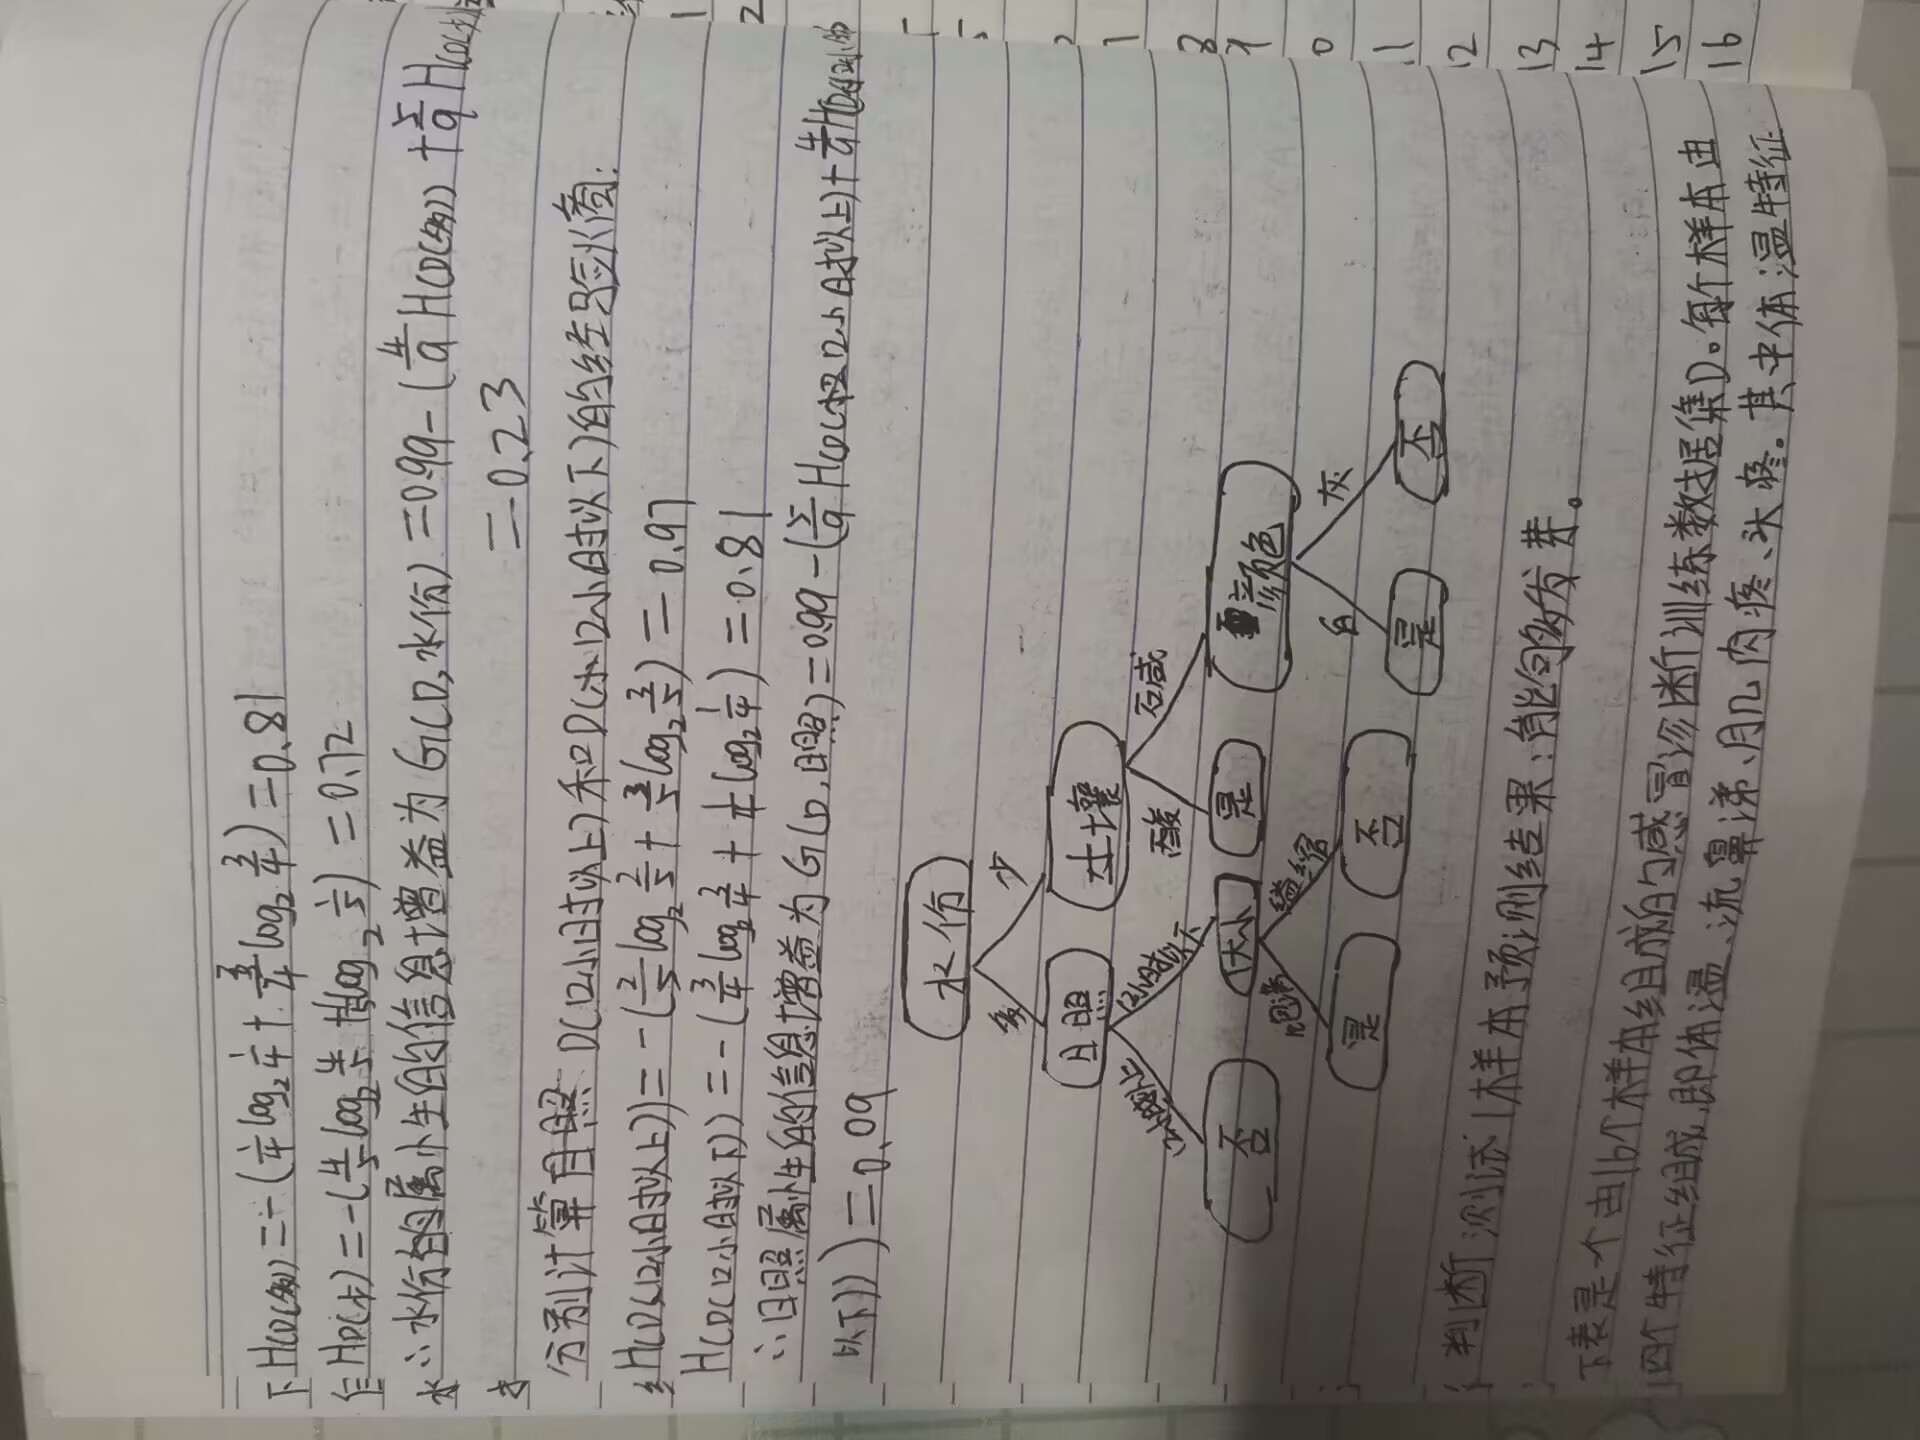 H(D(多)) = -(1/4 log₂ 1/4 + 3/4 log₂ 3/4) = 0.81
H(D(少)) = -(4/5 log₂ 4/5 + 1/5 log₂ 1/5) = 0.72
∴水份的属性的信息增益为 G(D,水份) = 0.99 - (4/9 H(D(多)) + 5/9 H(D(少
= 0.23
分别计算日照 D(12小时以上)和D(12小时以下)的经验熵:
H(D(12小时以上)) = -(2/5 log₂ 2/5 + 3/5 log₂ 3/5) = 0.97
H(D(12小时以下)) = -(3/4 log₂ 3/4 + 1/4 log₂ 1/4) = 0.81
∴日照属性的信息增益为 G(D,日照) = 0.99 - (5/9 H(D(12小时以上) + 4/9 H(D(12小时
以下)) = 0.09
水份
多 少
日照 土壤
12小时以上 12小时以下 酸 碱
否 大小 是 颜色
饱满 白 灰
是 否 是 否
判断测试1样本预测结果:能够发芽。
下表是个由16个样本组成的感冒诊断训练数据集D。每个样本由
四个特征组成,即体温、流鼻涕、肌肉疼、头疼。其中体温特征
1
2
11
12
13
14
15
16